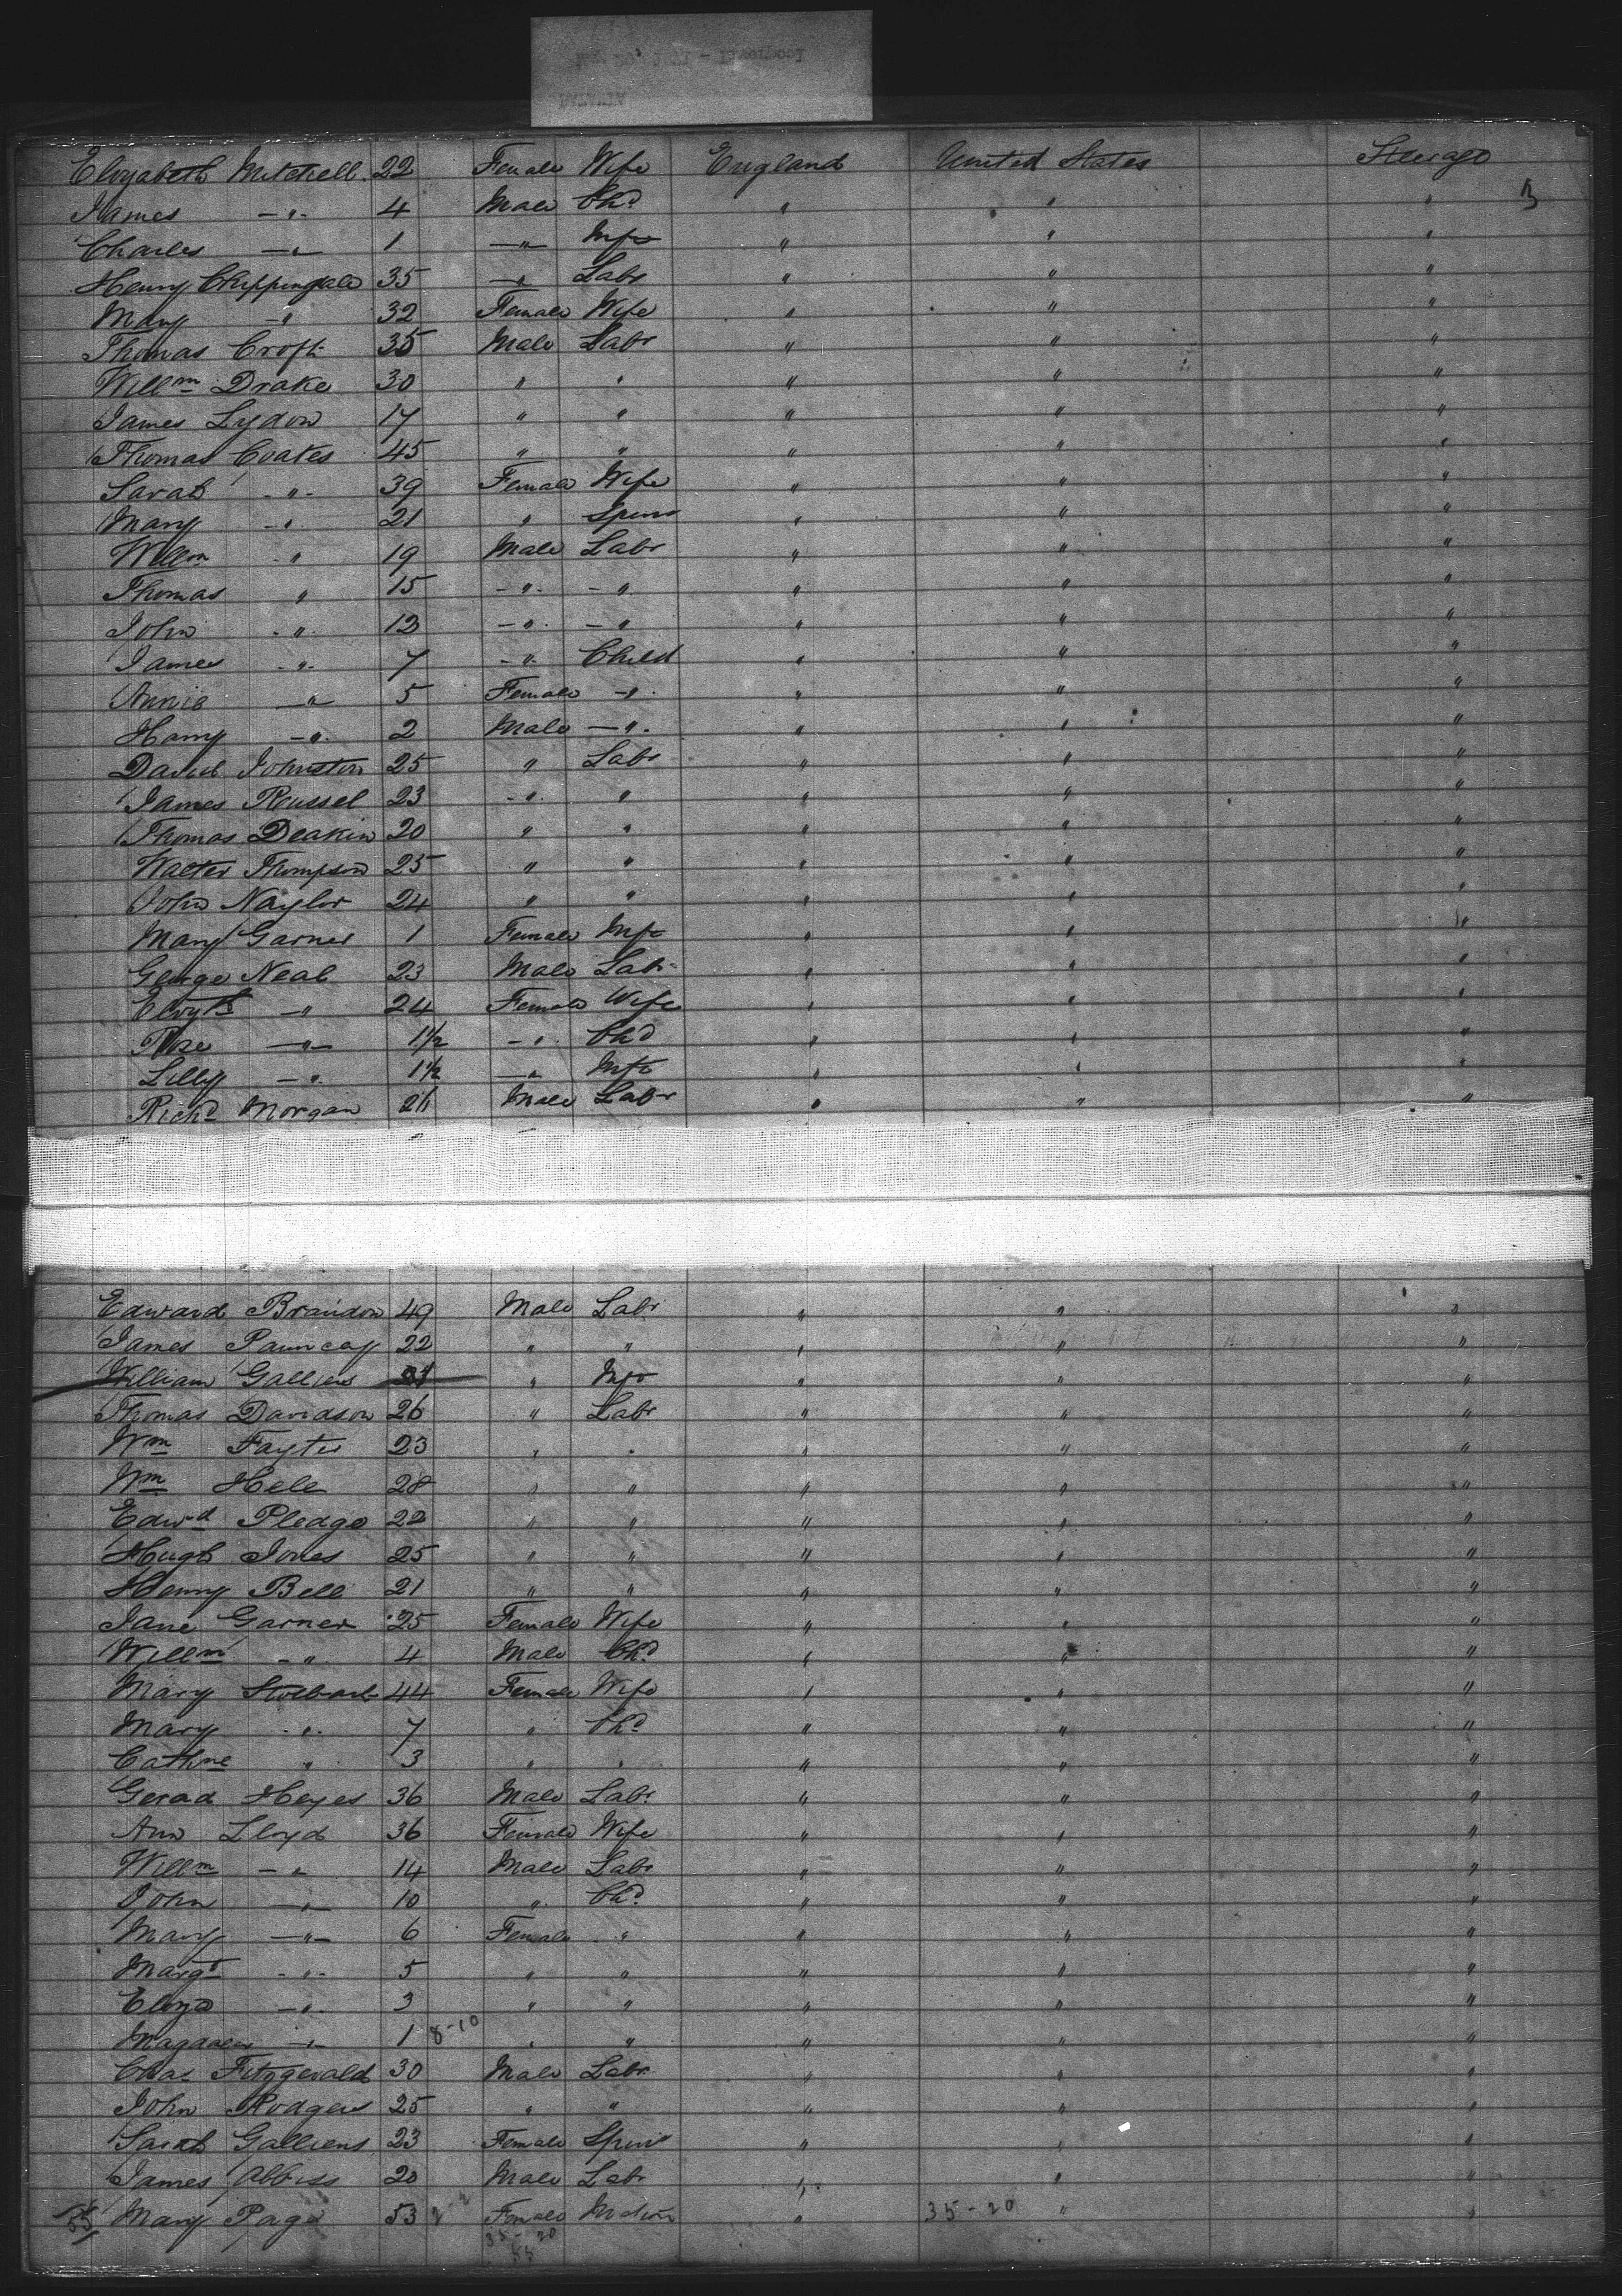 Elizabeth Mitchell 22 Female Wife England United States Steerage
James -"- 4 Male Chd " " " 3
Charles -"- 1 -"- Inft " " "
Henry Chippingdale 35 -"- Labr " " "
Mary -"- 32 Female Wife " " "
Thomas Croft 35 Male Labr " " "
Willm Drake 30 " " " " "
James Lydon 17 " " " " "
Thomas Coates 45 " " " " "
Sarah -"- 39 Female Wife " " "
Mary -"- 21 " Spinr " " "
Willm " 19 Male Labr " " "
Thomas " 15 -"- -"- " " "
John -"- 13 -"- -"- " " "
James -"- 7 -"- Child " " "
Annie -"- 5 Female -"- " " "
Harry -"- 2 Male -"- " " "
David Johnston 25 " Labr " " "
James Roussel 23 -"- " " " "
Thomas Deakin 20 " " " " "
Walter Thompson 25 " " " " "
John Naylor 24 " " " " "
Mary Garner 1 Female Inft " " "
George Neal 23 Male Labr " " "
Elizth -"- 24 Female Wife " " "
Rose -"- 1½ -"- Chd " " "
Lilly -"- 1½ -"- Inft " " "
Richd Morgan 21 Male Labr " " "
Edward Brandon 49 Male Labr " " "
James Pauncey 22 " " " " "
William Galliens " Inft " " "
Thomas Davidson 26 " Labr " " "
Wm Fayter 23 " " " " "
Wm Hele 28 " " " " "
Edwd Pledge 22 " " " " "
Hugh Jones 25 " " " " "
Henry Bell 21 " " " " "
Jane Garner 25 Female Wife " " "
Willm -"- 4 Male Chd " " "
Mary 44 Female Wife " " "
Mary -"- 7 " Chd " " "
Cathne " 3 " " " " "
Gerad Heyes 36 Male Labr " " "
Ann Lloyd 36 Female Wife " " "
Willm -"- 14 Male Labr " " "
John -"- 10 " Chd " " "
Mary -"- 6 Female " " " "
Margt -"- 5 " " " " "
Eliza -"- 3 " " " " "
Magdalen -"- 1 8-10 " " " " "
Chas Fitzgerald 30 Male Labr " " "
John Rodgers 25 " " " " "
Sarah Galliens 23 Female Spinr " " "
James Abbiss 20 Male Labr " " "
55 Mary Page 53 2-2 Female Matron " 35-20 " "
35-20
55